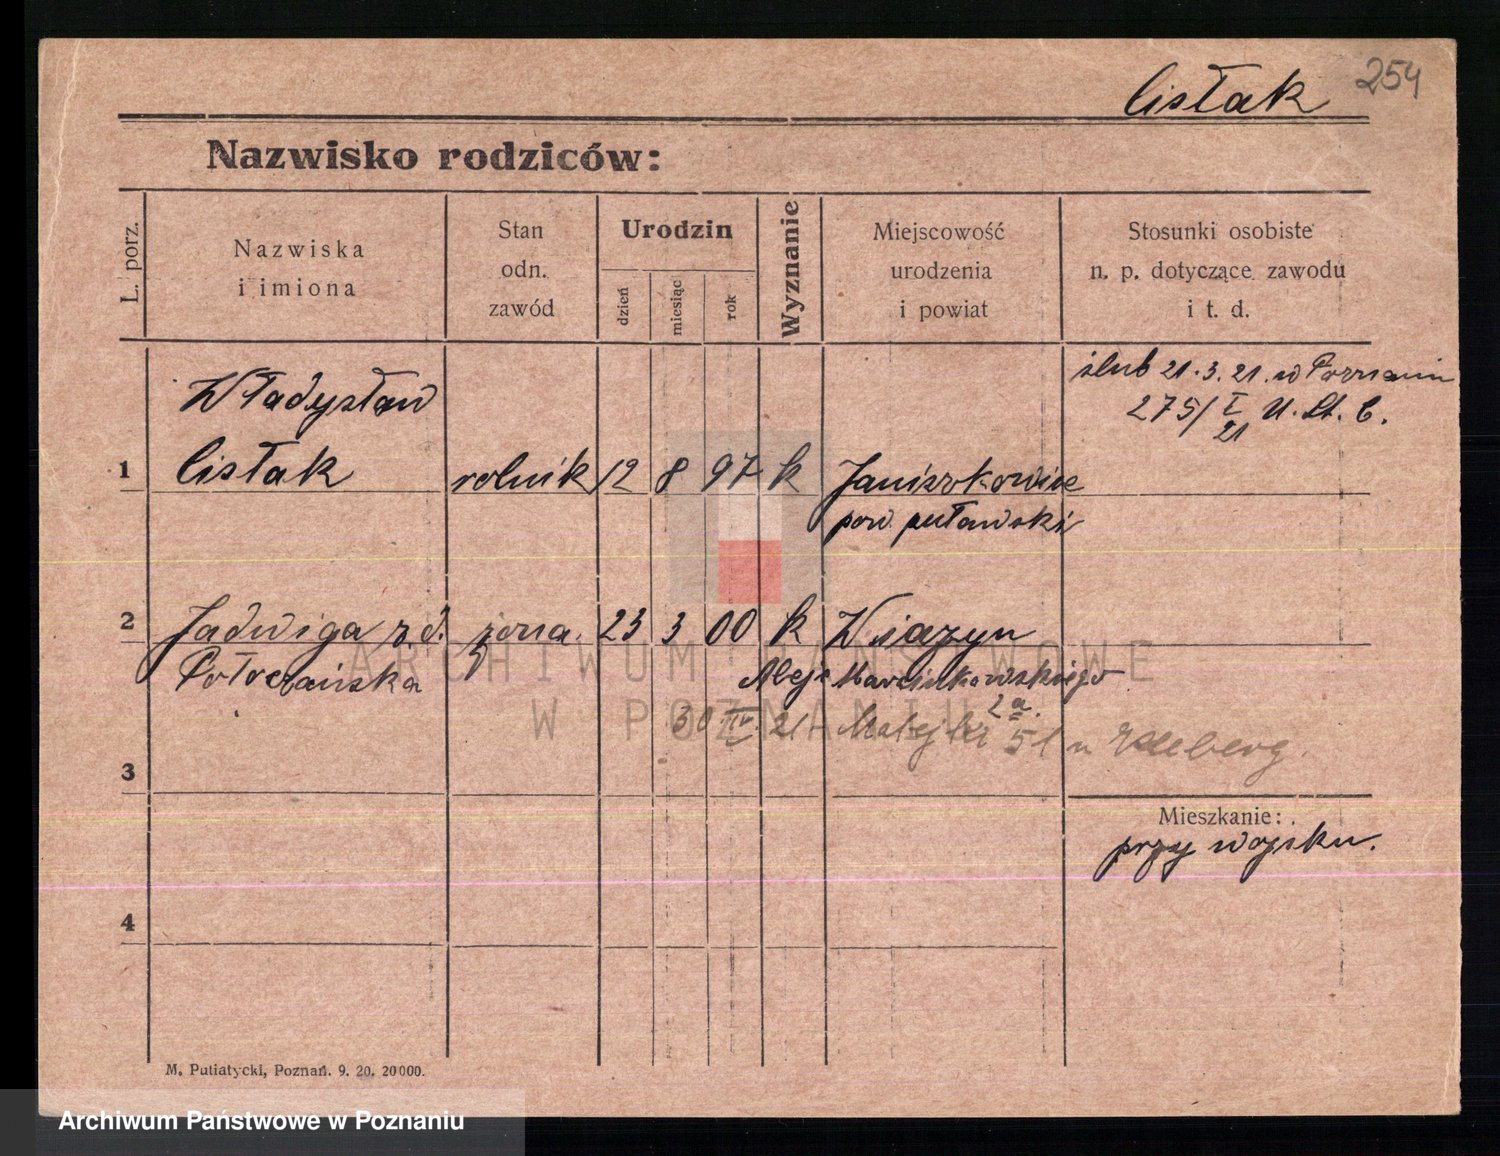 Cisłak 254
Nazwisko rodziców:
L. porz.
Nazwiska
i imiona
Stan
odn.
zawód
Urodzin
dzień
miesiąc
rok
Wyznanie
Miejscowość
urodzenia
i powiat
Stosunki osobiste
n. p. dotyczące zawodu
i t. d.
ślub 21.3.21. w Poznaniu
275/I 21 U. St. C.
Władysław
1 Cisłak rolnik 12 8 97 k Janiszkowice
pow. puławski
2 Jadwiga z d. żona 23 3 00 k Wiazyn
Połoczańska Aleje Marcinkowskiego
2a.
30 IV. 21 Matejki 51 u
3
Mieszkanie:
przy wojsku.
4
M. Putiatycki, Poznań. 9. 20. 20000.
ARCHIWUM PAŃSTWOWE
W POZNANIU
Archiwum Państwowe w Poznaniu